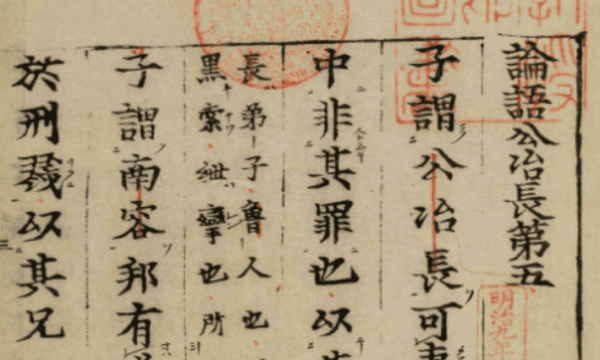 論語公冶長第五
子謂公冶長可
中非其罪也以
長弟子魯人也
黒索紲攣也所
子謂南容邦有
於刑戮以其兄
明治九年